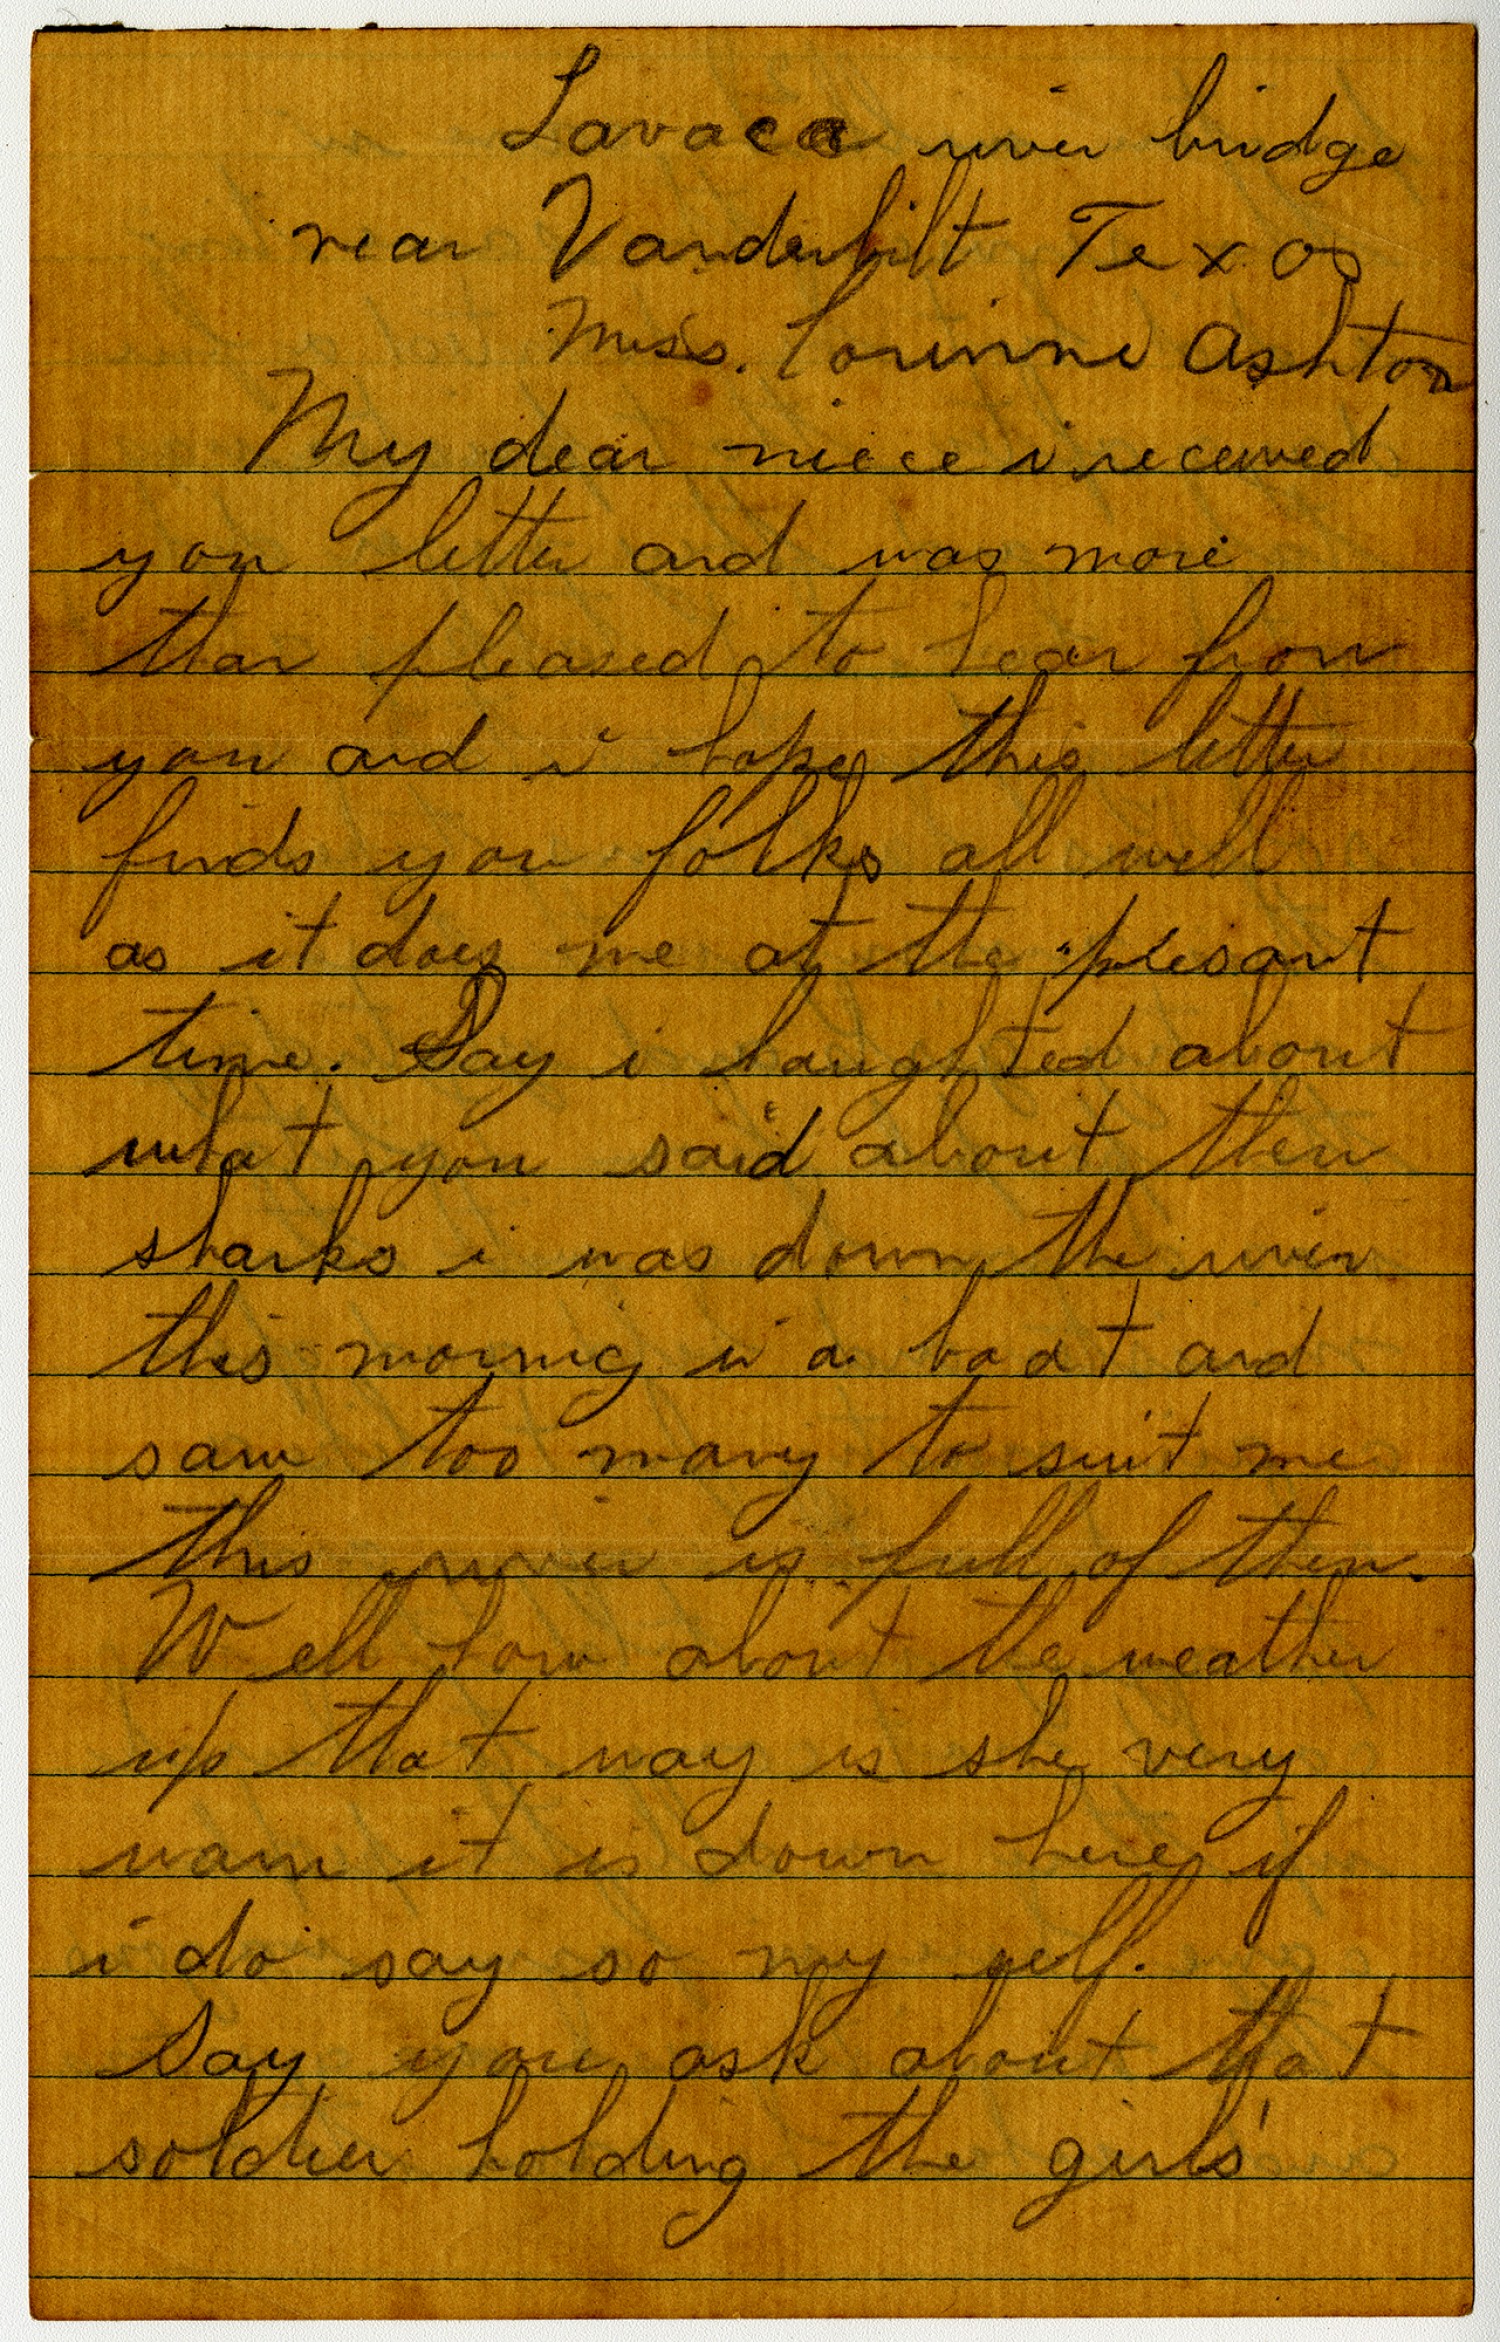 Lavaca river bridge
near Vanderbilt Texas
Miss. Corinne Ashton
My dear niece i received
you letter and was more
than pleased to hear from
you and i hope this letter
finds you folks all well
as it does me at the plesant
time. Say i laughted about
what you said about them
sharks i was down the river
this mornig in a boat and
saw too many to suit me
this river is full of them.
Well how about the weather
up that way is she very
warm it is down here if
i do say so my self.
Say you ask about that
soldier holding the girls'